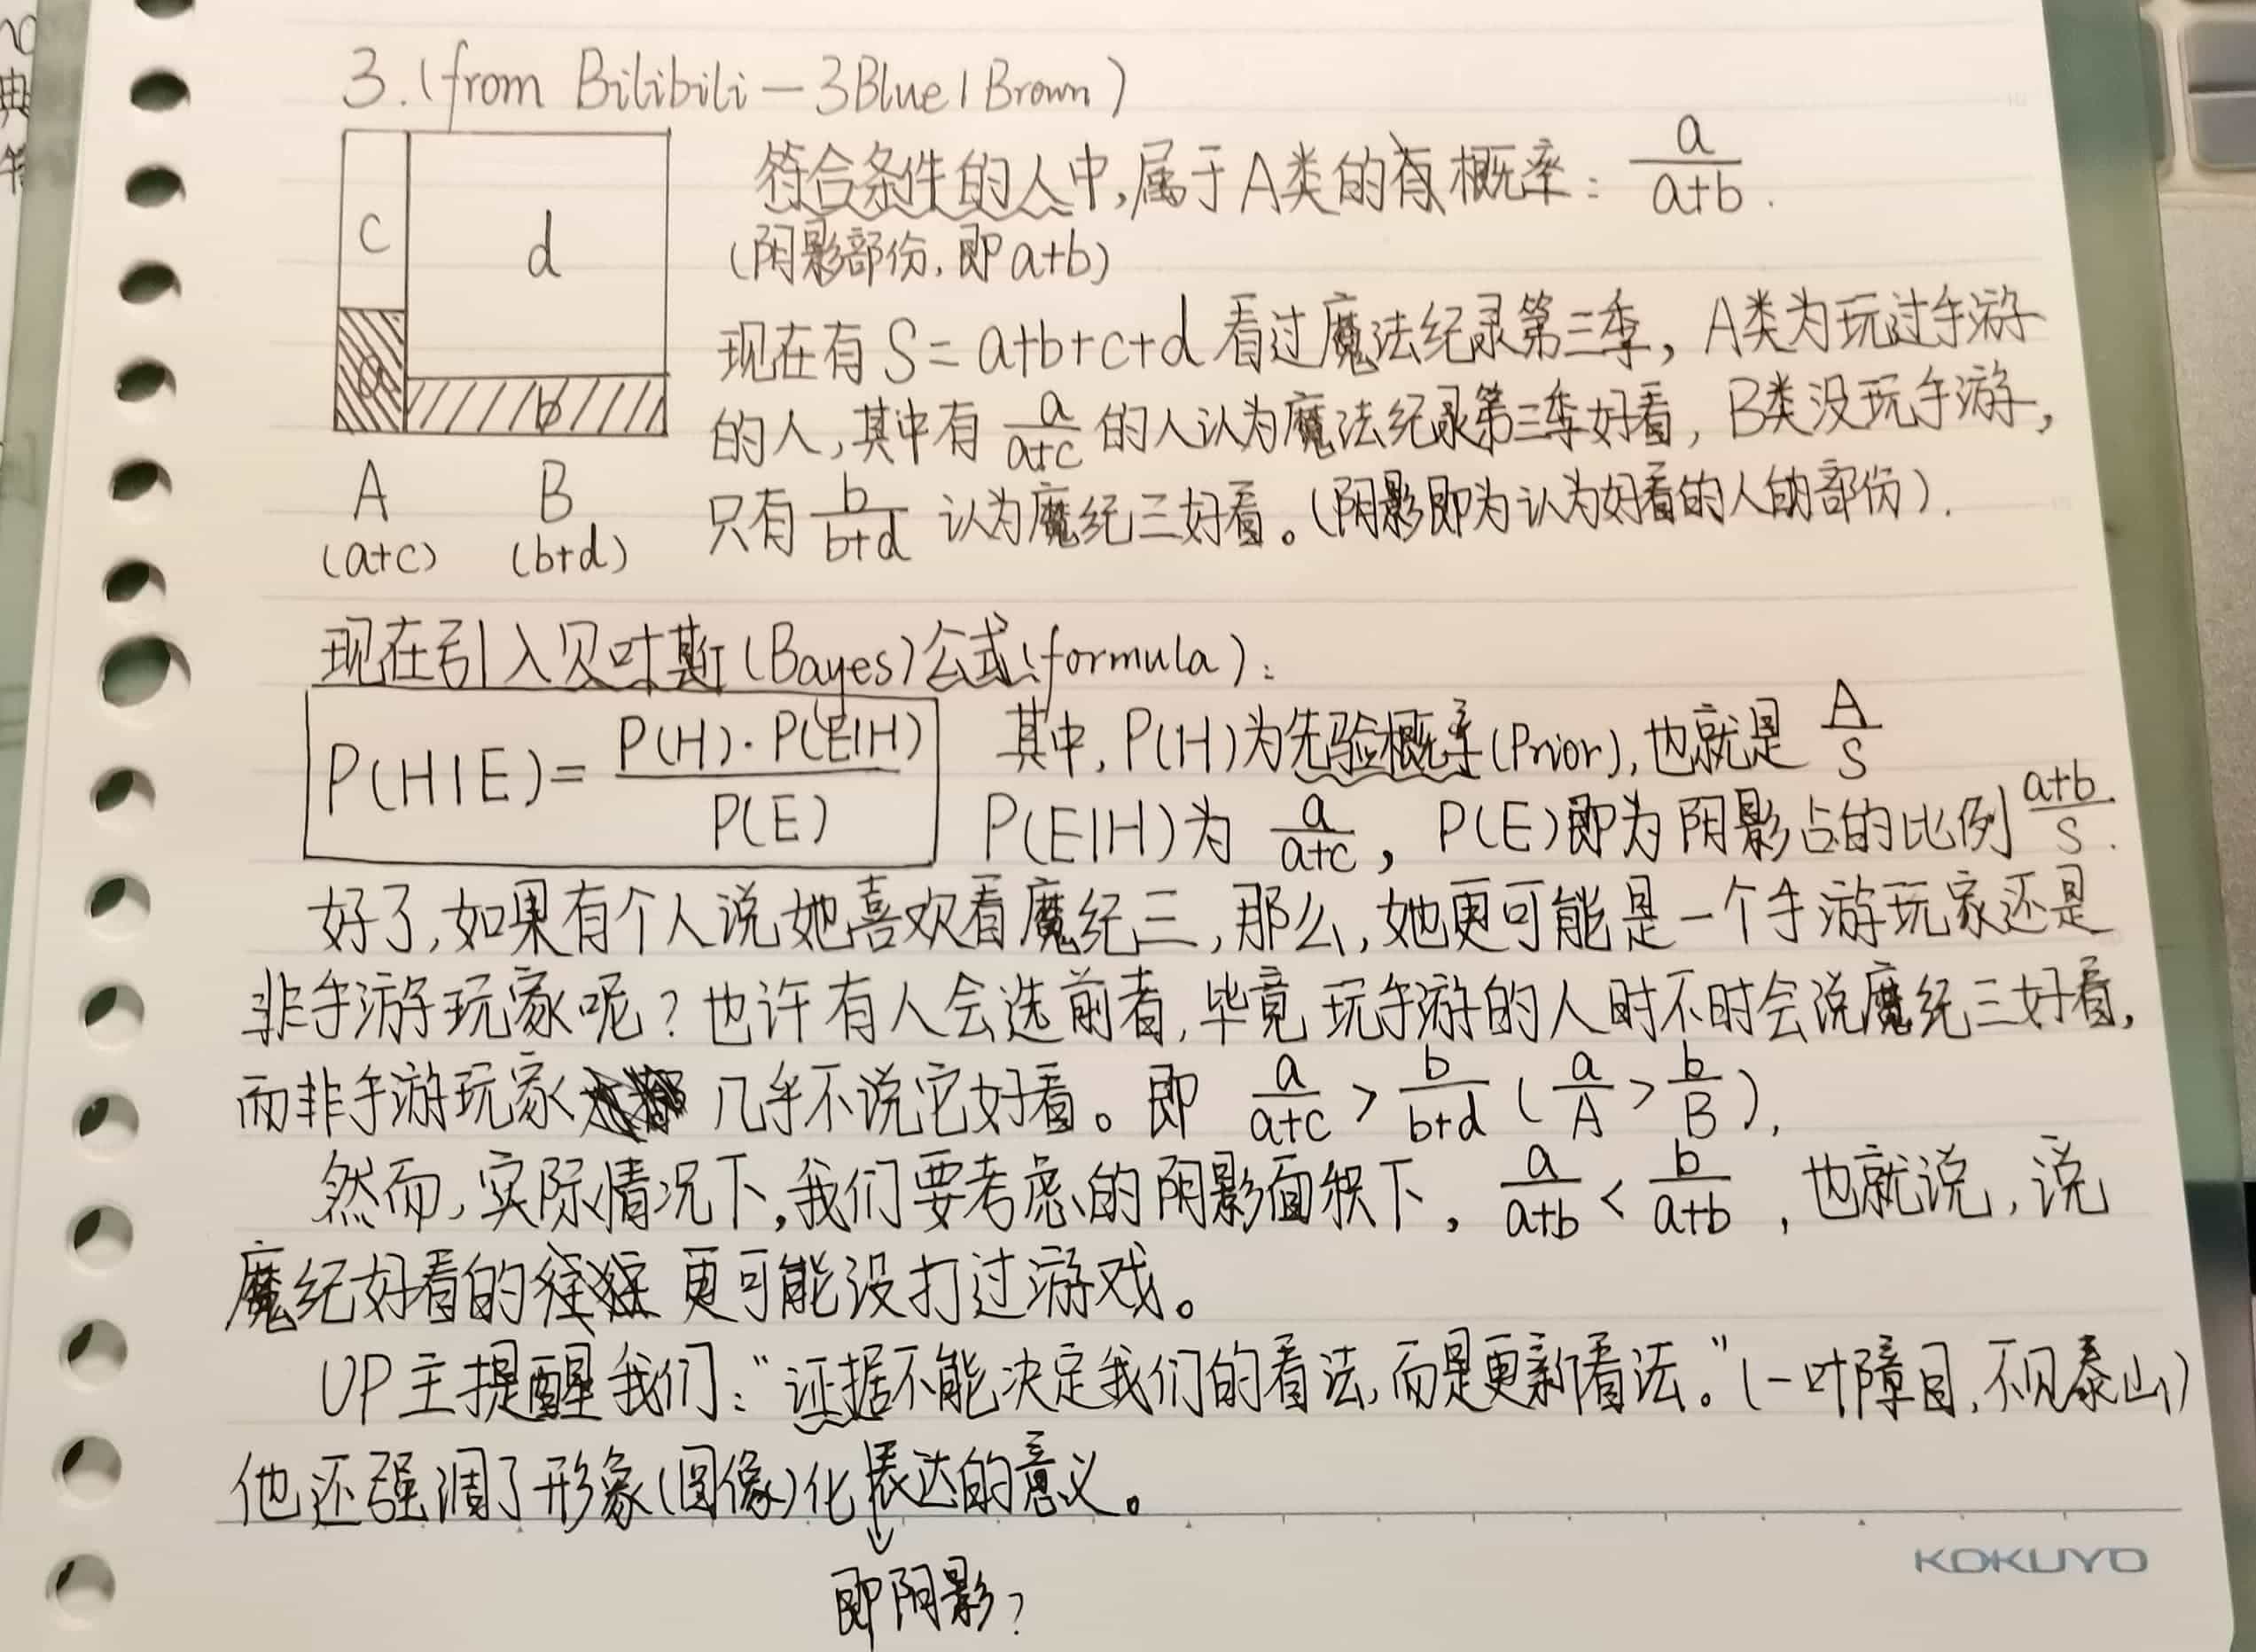 3.(from Bilibili－3Blue1Brown)
c
d
a
b
A
B
(a+c)
(b+d)
符合条件的人中,属于A类的概率: a/(a+b).
(阴影部份,即a+b)
现在有S=a+b+c+d看过魔法纪录第三季, A类为玩过手游
的人,其中有 a/(a+c) 的人认为魔法纪录第三季好看, B类没玩手游,
只有 b/(b+d) 认为魔纪三好看。(阴影即为认为好看的人的部份).
现在引入贝叶斯(Bayes)公式(formula):
P(H|E)= P(H)·P(E|H) / P(E)
其中, P(H)为先验概率(Prior),也就是 A/S
P(E|H)为 a/(a+c), P(E)即为阴影占的比例 (a+b)/S.
好了,如果有个人说她喜欢看魔纪三,那么,她更可能是一个手游玩家还是
非手游玩家呢?也许有人会选前者,毕竟玩手游的人时不时会说魔纪三好看,
而非手游玩家几乎不说它好看。即 a/(a+c) > b/(b+d) ( a/A > b/B ),
然而,实际情况下,我们要考虑的阴影面积下, a/(a+b) < b/(a+b) ,也就说,说
魔纪好看的更可能没打过游戏。
UP主提醒我们:“证据不能决定我们的看法,而是更新看法。”(一叶障目,不见泰山)
他还强调了形象(图像)化表达的意义。
即阴影?
KOKUYO